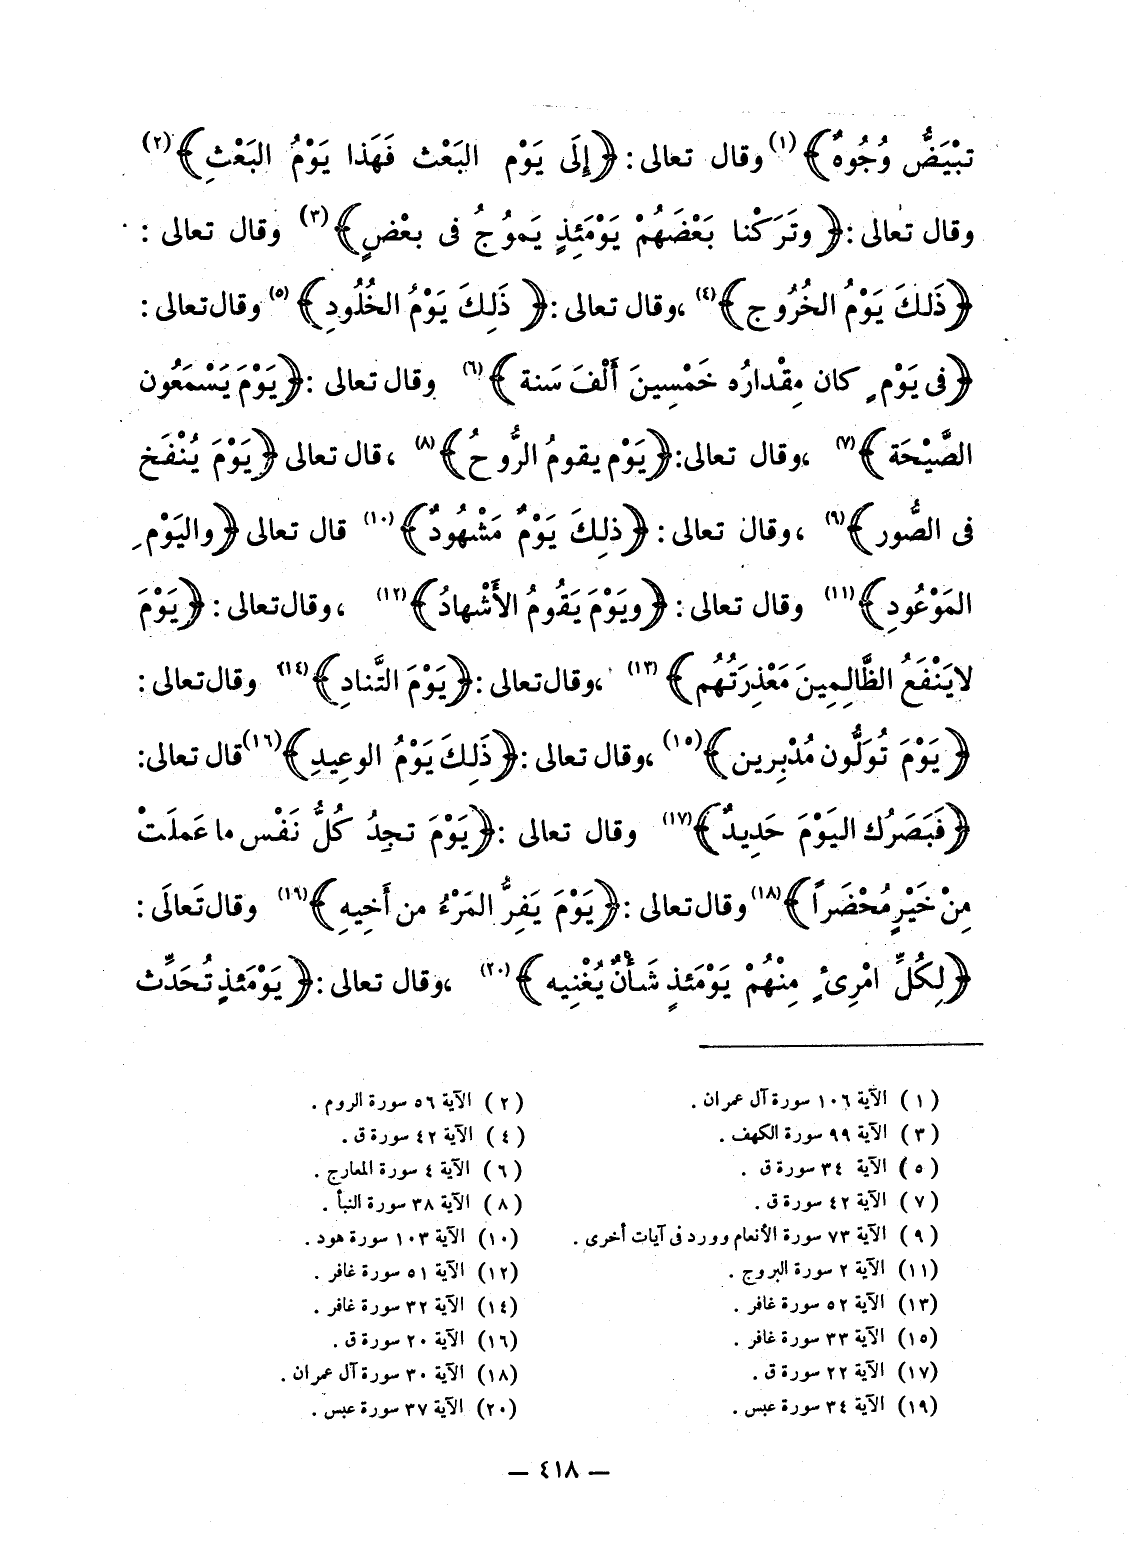 تبْيَضُّ وُجُوهٌ﴾(١) وقال تعالى : ﴿إِلَى يَوْم البَعْث فَهَذا يَوْمُ البَعْثِ﴾(٢)
وقال تعالى :﴿وتَرَكْنا بَعْضَهُمْ يَوْمَئِذٍ يَموُجُ فى بعْضٍ﴾(٣) وقال تعالى :
﴿ذَلكَ يَوْمُ الخُرُوج﴾(٤) ،وقال تعالى :﴿ ذَلِكَ يَوْمُ الخُلُودِ﴾(٥) وقال تعالى :
﴿فى يَوْمٍ كان مِقْدارُه خَمْسِينَ أَلْفَ سَنة﴾(٦) وقال تعالى :﴿يَوْمَ يَسْمَعُون
الصَّيْحَة﴾(٧) ،وقال تعالى:﴿يَوْم يقومُ الرُّوحُ﴾(٨) ، قال تعالى ﴿يَوْمَ يُنْفَخ
فى الصُّور﴾(٩) ، وقال تعالى : ﴿ذلِكَ يَوْمٌ مَشْهُودٌ﴾(١٠) قال تعالى ﴿واليَوْمِ
المَوْعُودِ﴾(١١) وقال تعالى : ﴿ويَوْمَ يَقُومُ الأَشْهادُ﴾(١٢) ، وقال تعالى : ﴿يَوْمَ
لايَنْفَعُ الظَّالِمِينَ مَعْذِرَتُهُم﴾ (١٣) ،وقال تعالى :﴿يَوْمَ التَّنادِ﴾(١٤) وقال تعالى :
﴿يَوْمَ تُوَلُّون مُدْبِرين﴾(١٥) ،وقال تعالى :﴿ذَلِكَ يَوْمُ الوعِيدِ﴾(١٦) قال تعالى:
﴿فَبَصَرُك اليَوْمَ حَدِيدٌ﴾(١٧) وقال تعالى :﴿يَوْمَ تجِدُ كُلُّ نَفْس ما عَملَتْ
مِنْ خَيْرٍ مُحْضَراً﴾(١٨) وقال تعالى :﴿يَوْمَ يَفِرُّ المَرْءُ من أَخيِهِ﴾(١٩) وقال تَعالَى :
﴿لِكُلِّ امْرِىءٍ مِنْهُمْ يَوْمَئذٍ شَأْنٌ يُغْنِيه﴾(٢٠) ،وقال تعالى :﴿يَوْمَئذٍ تُحَدِّث
(١) الآية ١٠٦ سورة آل عمران . (٢) الآية ٥٦ سورة الروم .
(٣) الآية ٩٩ سورة الكهف . (٤) الآية ٤٢ سورة ق .
(٥) الآية ٣٤ سورة ق . (٦) الآية ٤ سورة المعارج .
(٧) الآية ٤٢ سورة ق . (٨) الآية ٣٨ سورة النبأ .
(٩) الآية ٧٣ سورة الأنعام وورد فى آيات أخرى . (١٠) الآية ١٠٣ سورة هود .
(١١) الآية ٢ سورة البروج . (١٢) الآية ٥١ سورة غافر .
(١٣) الآية ٥٢ سورة غافر . (١٤) الآية ٣٢ سورة غافر .
(١٥) الآية ٣٣ سورة غافر . (١٦) الآية ٢٠ سورة ق .
(١٧) الآية ٢٢ سورة ق . (١٨) الآية ٣٠ سورة آل عمران .
(١٩) الآية ٣٤ سورة عبس . (٢٠) الآية ٣٧ سورة عبس .
— ٤١٨ —